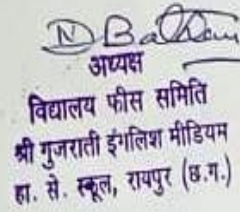 अध्यक्ष
विद्यालय फीस समिति
श्री गुजराती इंगलिश मीडियम
हा. से. स्कूल, रायपुर (छ.ग.)